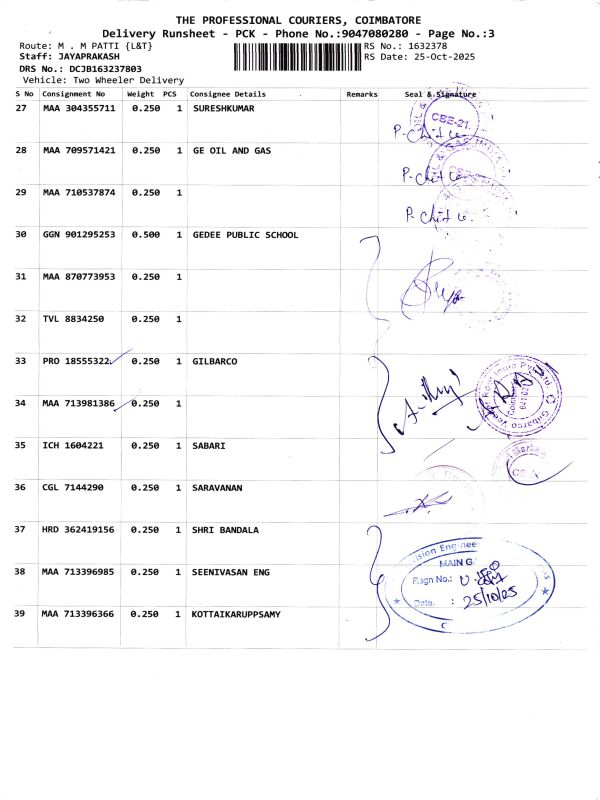 THE PROFESSIONAL COURIERS, COIMBATORE
Delivery Runsheet - PCK - Phone No.:9047080280 - Page No.:3
Route: M . M PATTI {L&T} RS No.: 1632378
Staff: JAYAPRAKASH RS Date: 25-Oct-2025
DRS No.: DCJB163237803
Vehicle: Two Wheeler Delivery
S No Consignment No Weight PCS Consignee Details Remarks Seal & Signature
27 MAA 304355711 0.250 1 SURESHKUMAR
CBE-21.
28 MAA 709571421 0.250 1 GE OIL AND GAS
29 MAA 710537874 0.250 1
30 GGN 901295253 0.500 1 GEDEE PUBLIC SCHOOL
31 MAA 870773953 0.250 1
32 TVL 8834250 0.250 1
33 PRO 18555322 0.250 1 GILBARCO
34 MAA 713981386 0.250 1
35 ICH 1604221 0.250 1 SABARI
36 CGL 7144290 0.250 1 SARAVANAN
37 HRD 362419156 0.250 1 SHRI BANDALA
38 MAA 713396985 0.250 1 SEENIVASAN ENG
MAIN G
Ragn No.:
Date. : 25/10/25
39 MAA 713396366 0.250 1 KOTTAIKARUPPSAMY